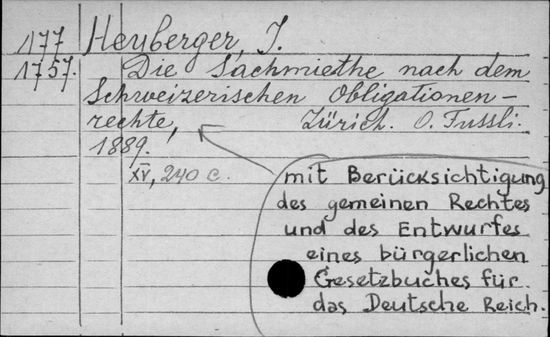 177 Heyberger, J.
1757. Die Sachmiethe nach dem
Schweizerischen Obligationen-
rechte, Zürich. O. Fussli.
1889.
XV, 240 c.
mit Berücksichtigung
des gemeinen Rechtes
und des Entwurfes
eines bürgerlichen
Gesetzbuches für
das Deutsche Reich.